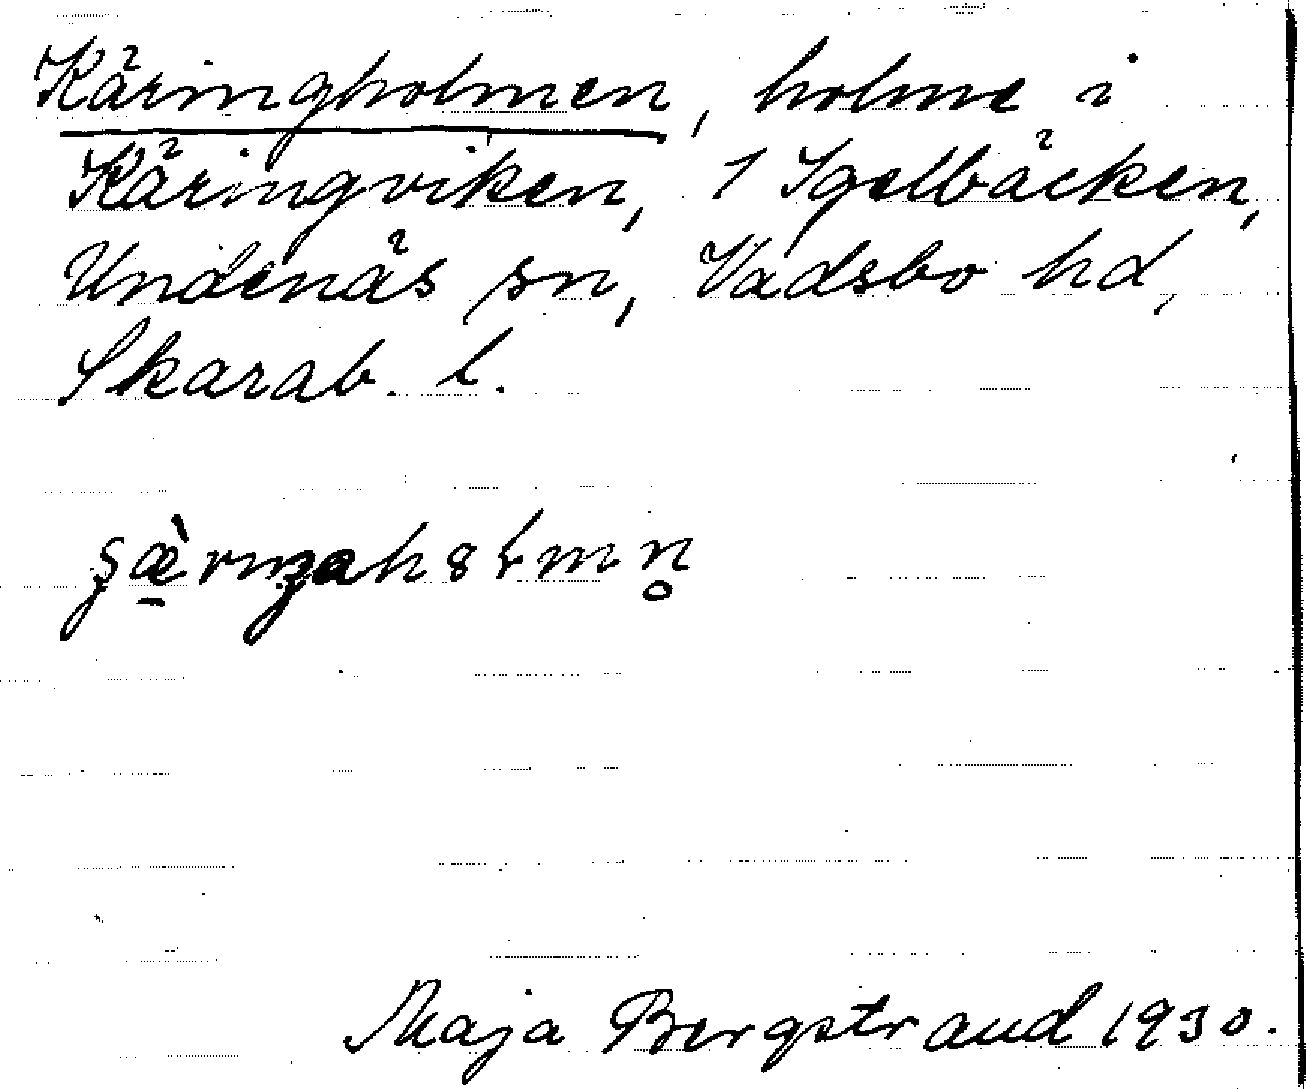 Käringholmen, holme i
Käringviken, 1 Igelbäcken,
Undenäs sn, Vadsbo hd,
Skarab. l.
Maja Bergstrand 1930.